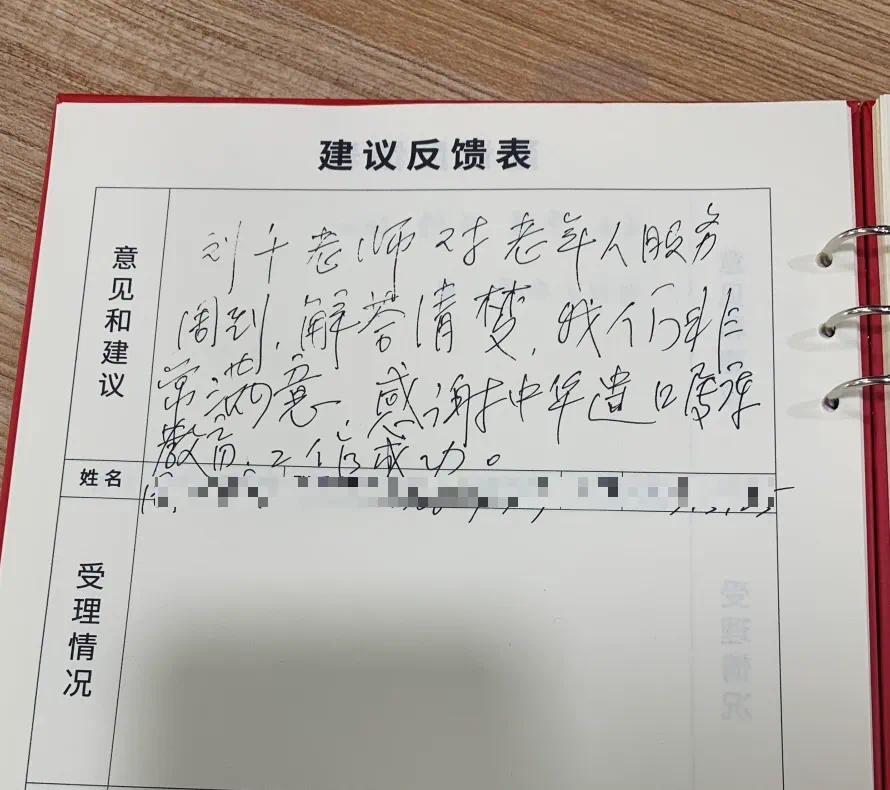 建议反馈表
意见和建议
刘千老师对老年人服务
周到，解答清楚，我们非
常满意。感谢中华遗嘱库
教育，工作成功。
姓名
受理情况